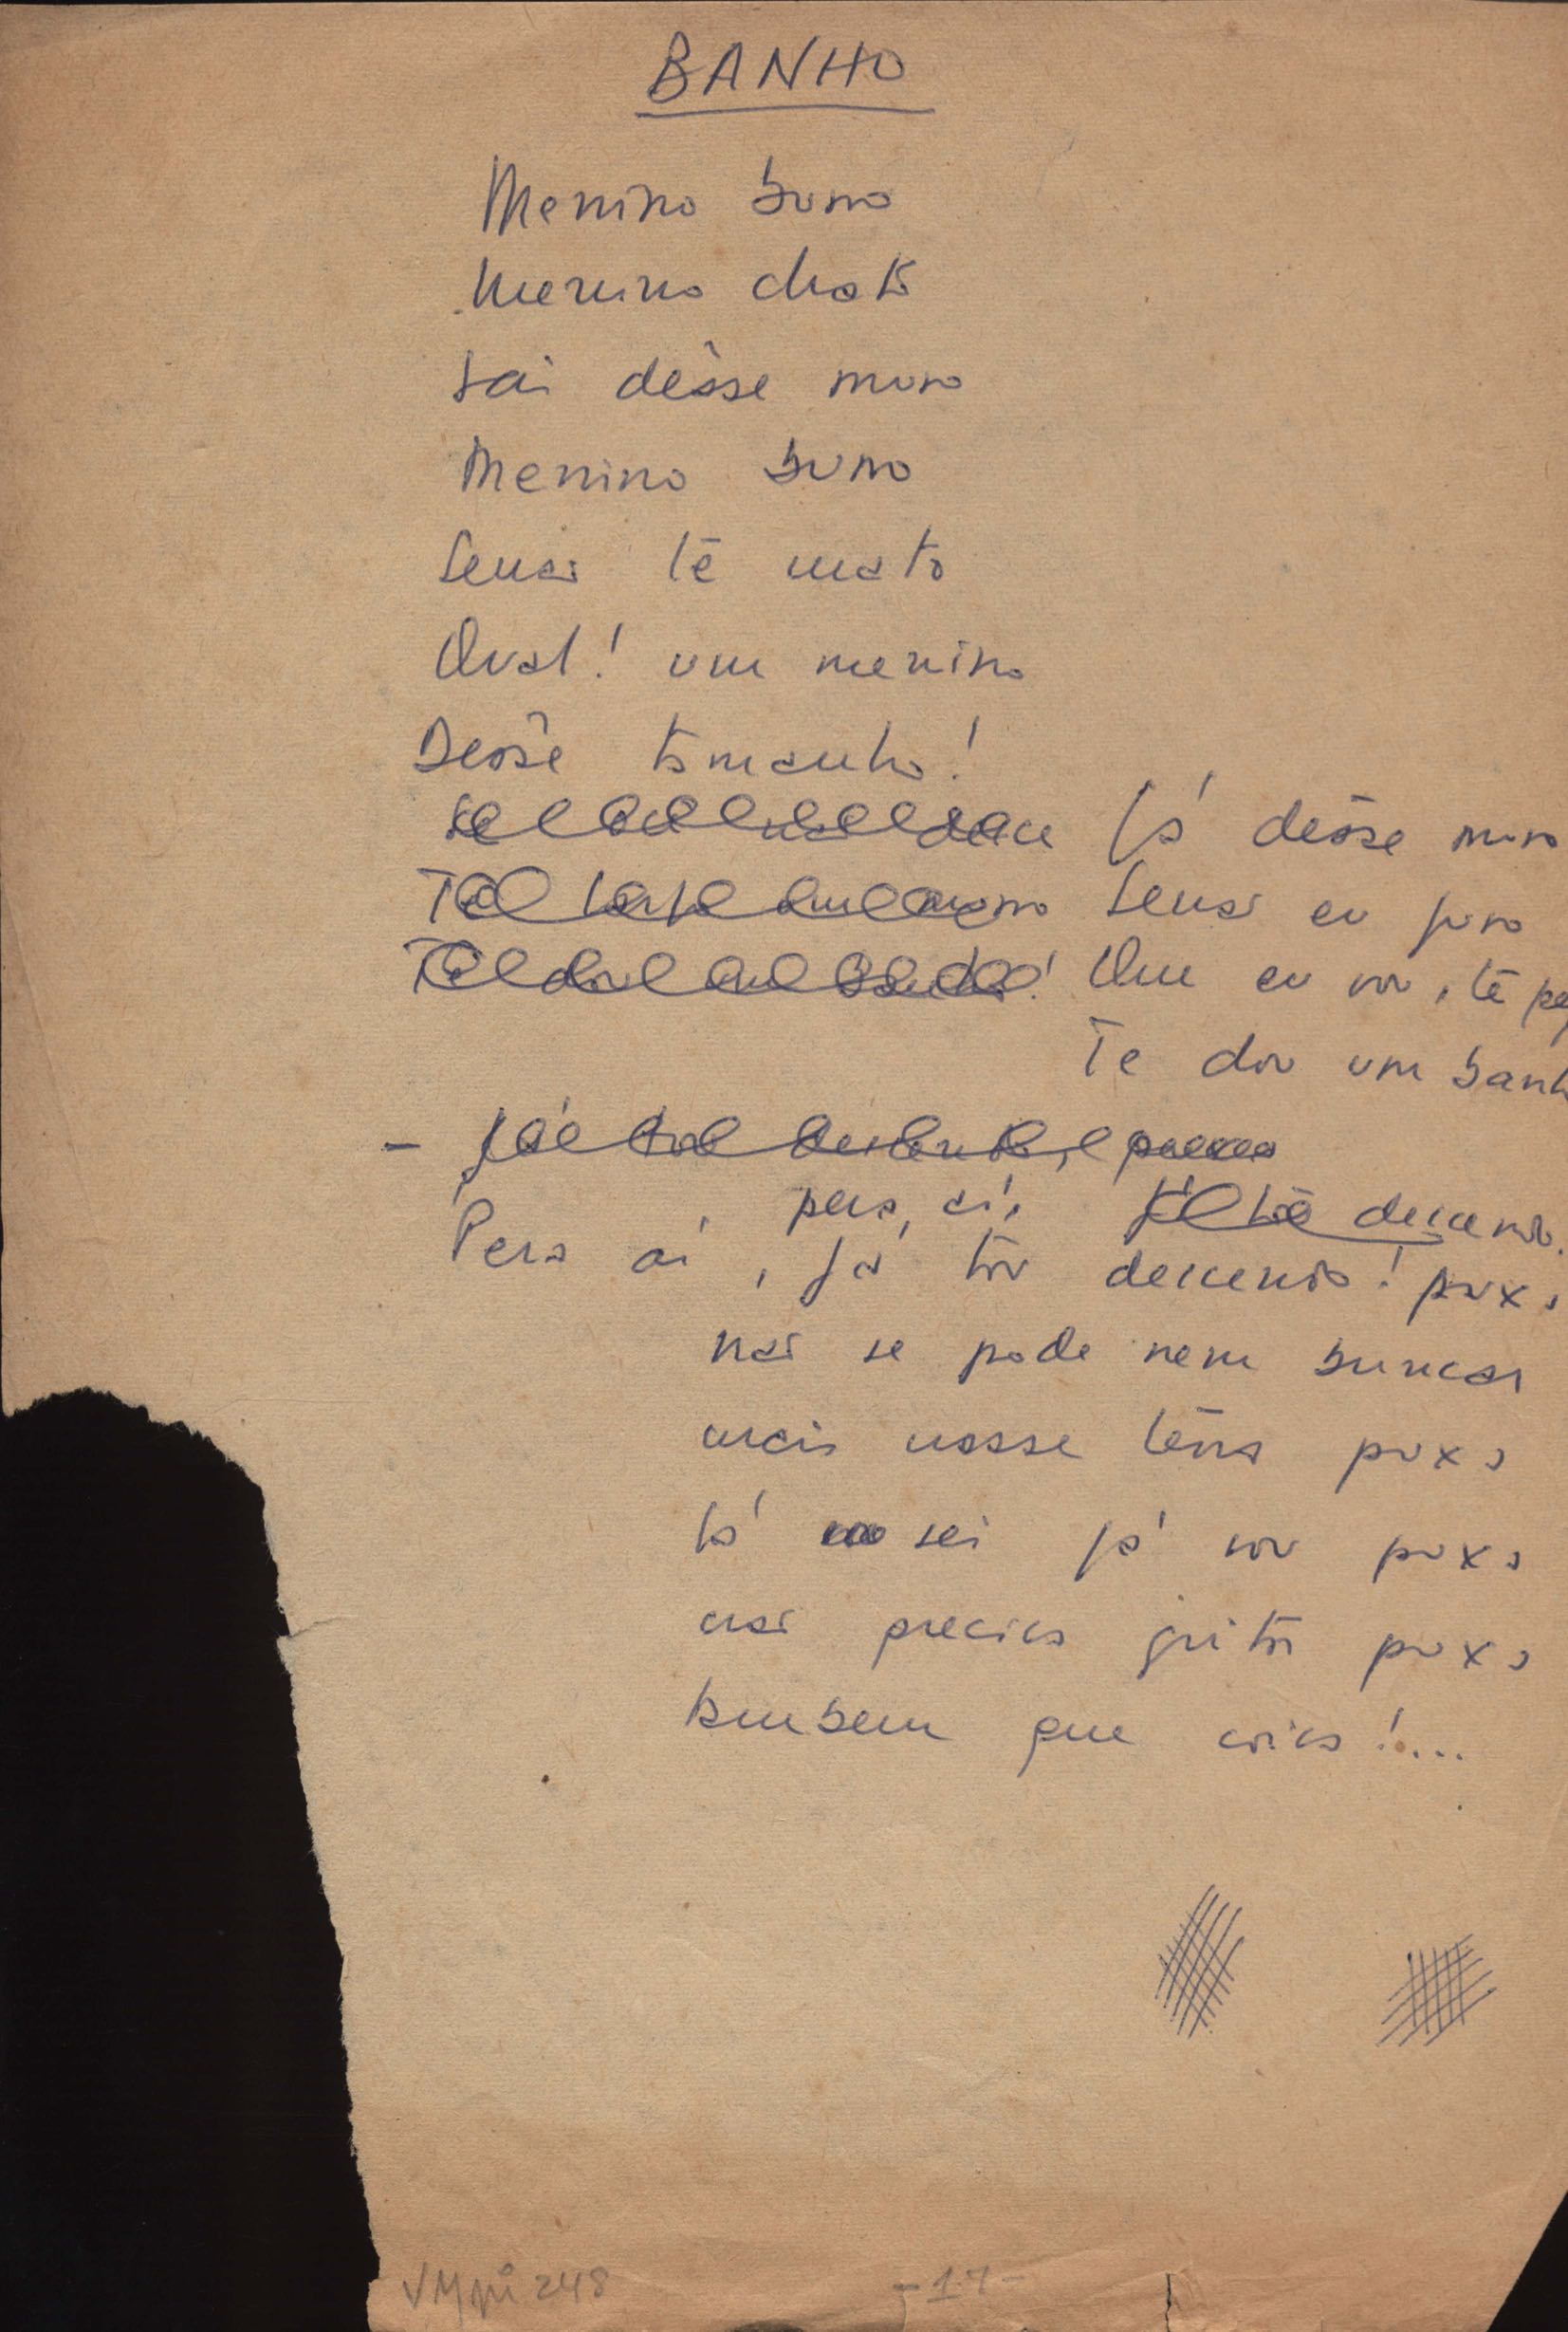 BANHO
Menino burro
Menino chato
Sai dêsse muro
Menino burro
Senão te mato
Qual! um menino
Desse tamanho!
Já dêsse muro
Senão eu juro
Que eu vou, te pe
Te dou um banh
- Já tou descendo, puxa
pera, aí, já tou descendo.
Pera aí, já tou descendo! puxa
não se pode nem brincar
mais nesse terra puxa
tá sei já vou puxa
não precisa gritar puxa
tambem que coisa!...
VMpi 248
-17-